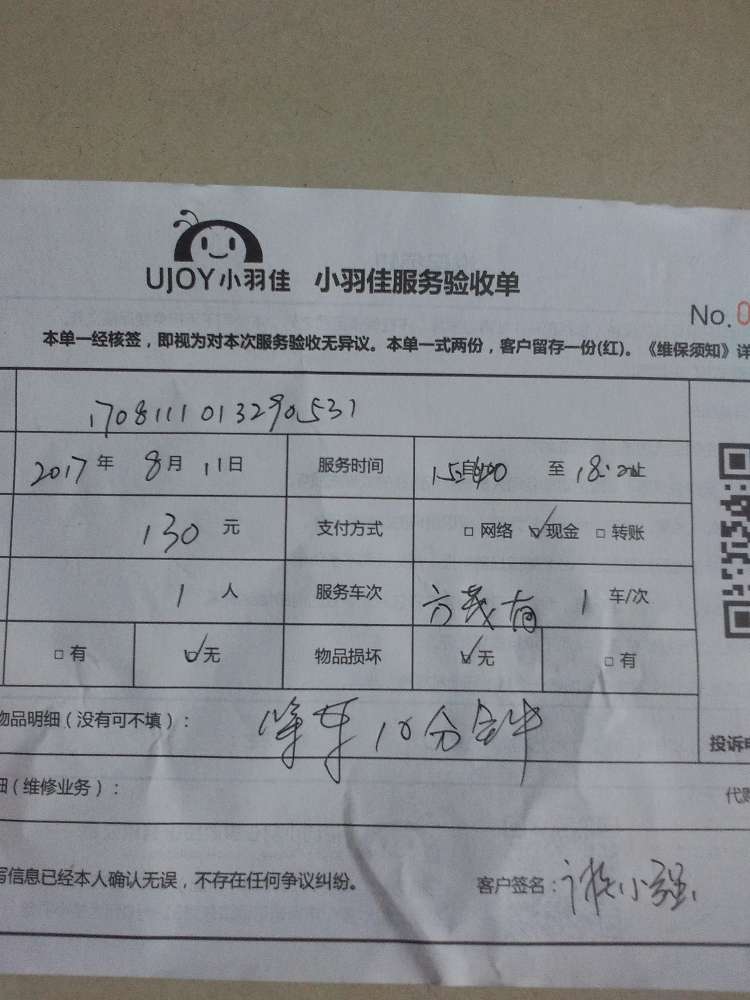 UJOY小羽佳 小羽佳服务验收单
No.0
本单一经核签，即视为对本次服务验收无异议。本单一式两份，客户留存一份(红)。《维保须知》详
1708111013290531
2017年 8月 11日 服务时间 至 18: 止
130 元 支付方式 □ 网络 ☑ 现金 □ 转账
1 人 服务车次 方茂有 1 车/次
□ 有 ☑ 无 物品损坏 ☑ 无 □ 有
物品明细（没有可不填）： 等车10分钟
投诉电
细（维修业务）： 代购
写信息已经本人确认无误，不存在任何争议纠纷。 客户签名： 小强